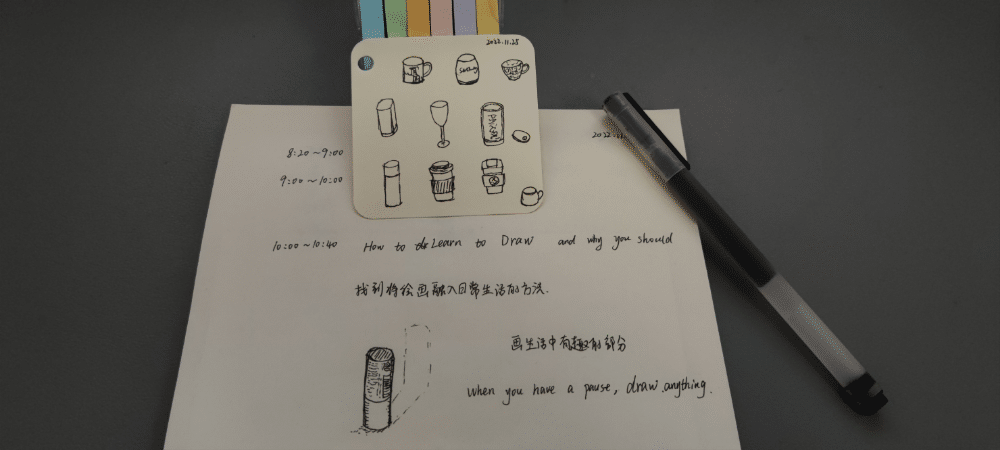 2022.11.25
8:20~9:00
9:00~10:00
10:00~10:40 How to Learn to Draw and why you should
找到将绘画融入日常生活的方法.
画生活中有趣的部分
When you have a pause, draw anything.